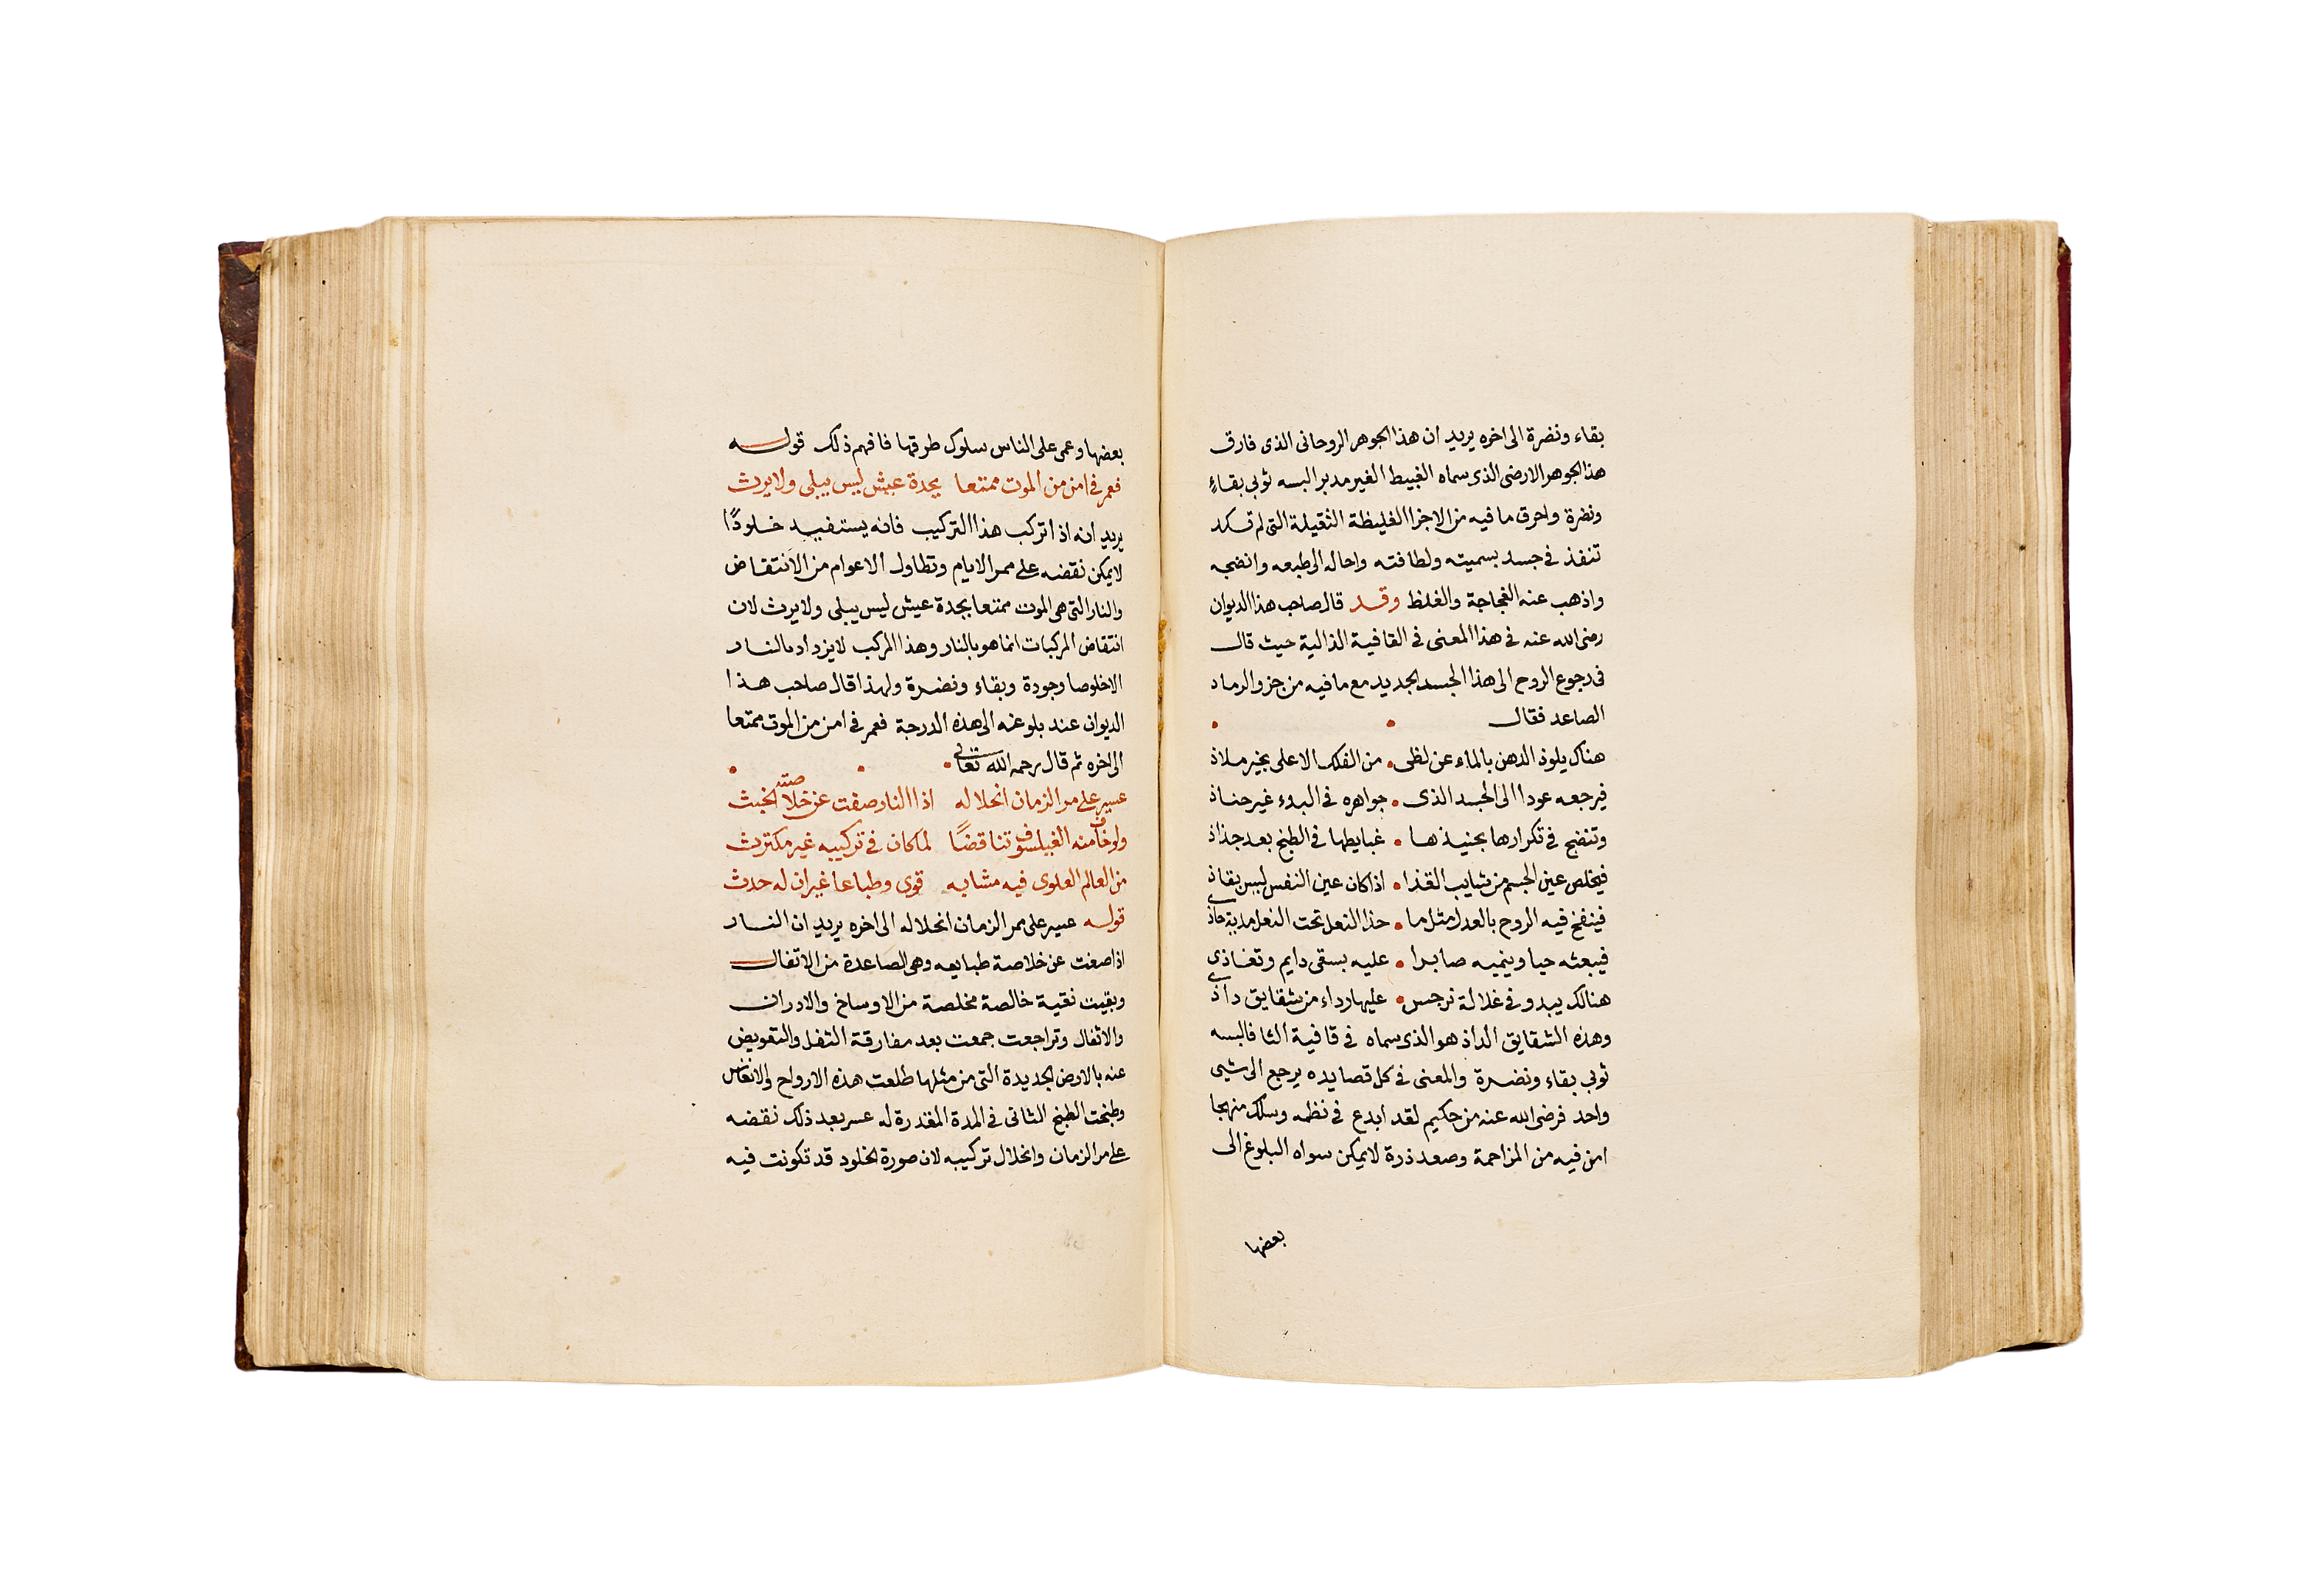 بقاء ونضرة الى اخره يريد ان هذا الجوهر الروحانى الذى فارق
هذا الجوهر الارضى الذى سماه الغبيط الغير مدبر البسه ثوبى بقاءٍ
ونضرة واحرق ما فيه من الاجزا الغليظة الثقيلة التى لم تكد
تنفذ فى جسد بسميته ولطافته واحاله الى طبعه وانضجه
واذهب عنه الفجاجة والغلظ وقد قال صاحب هذا الديوان
رضى الله عنه فى هذا المعنى فى القافية الذالية حيث قال
فى رجوع الروح الى هذا الجسد الجديد مع ما فيه من جزو الرماد
الصاعد فقال
هناك يلوذ الدهن بالماء عن لظى • من الفلك الاعلى بخير ملاذ
فيرجعه عودا الى الجسد الذى • جواهره فى البدء غير حناذ
وتنضج فى تكرارها بجنيذها • غبايطها فى الطبخ بعد جذاذ
فيخلص عين الجسم من شايب القذا • اذا كان عين النفس ليس بقاذ
فينفخ فيه الروح بالعدل مثل ما • حذا النعل تحت النعل مدية حاذى
فيبعثه حيا وينميه صابرا • عليه بسقى دايم وتغاذى
هنالك يبدو فى غلالة نرجس • عليها رداء من شقايق داذى
وهذه الشقايق الداذ هو الذى سماه فى قافية الثا فالبسه
ثوبى بقاء ونضرة والمعنى فى كل قصايده يرجع الى شيى
واحد فرضى الله عنه من حكيم لقد ابدع فى نظمه وسلك منهجا
امن فيه من المزاحمة وصعد ذروة لا يمكن سواه البلوغ الى
بعضها
بعضها وعمى على الناس سلوك طرقها فافهم ذلك قوله
فعمر فى امن من الموت ممتعا بجدة عيش ليس يبلى ولا يرث
يريد انه اذا تركب هذا التركيب فانه يستفيد خلودًا
لا يمكن نقضه على ممر الايام وتطاول الاعوام من الانتقاض
والنار التى هى الموت ممتعا بجدة عيش ليس يبلى ولا يرث لان
انتقاض المركبات انما هو بالنار وهذا المركب لا يزداد بالنار
الا خلوصا وجودة وبقاء ونضرة ولهذا قال صاحب هذا
الديوان عند بلوغه الى هذه الدرجة فعمر فى امن من الموت ممتعا
الى اخره ثم قال رحمه الله تعالى
عسير على مر الزمان انحلاله اذا النار صفت عن خلاصته الخبث
ولو خاف منه الفيلسوف تناقضًا لما كان فى تركيبه غير مكترث
من العالم العلوى فيه مشابه قوى وطباعا غير ان له حدث
قوله عسير على ممر الزمان انحلاله الى اخره يريد ان النار
اذا صفت عن خلاصة طبايعه وهى الصاعدة من الاثفال
وبقيت نقية خالصة مخلصة من الاوساخ والادران
والاثفال وتراجعت جمعت بعد مفارقة الثفل والتعويض
عنه بالارض الجديدة التى من مثلها طلعت هذه الارواح والانفاس
وطبخت الطبخ الثانى فى المدة المقدرة له عسر بعد ذلك نقضه
على مر الزمان وانحلال تركيبه لان صورة الخلود قد تكونت فيه